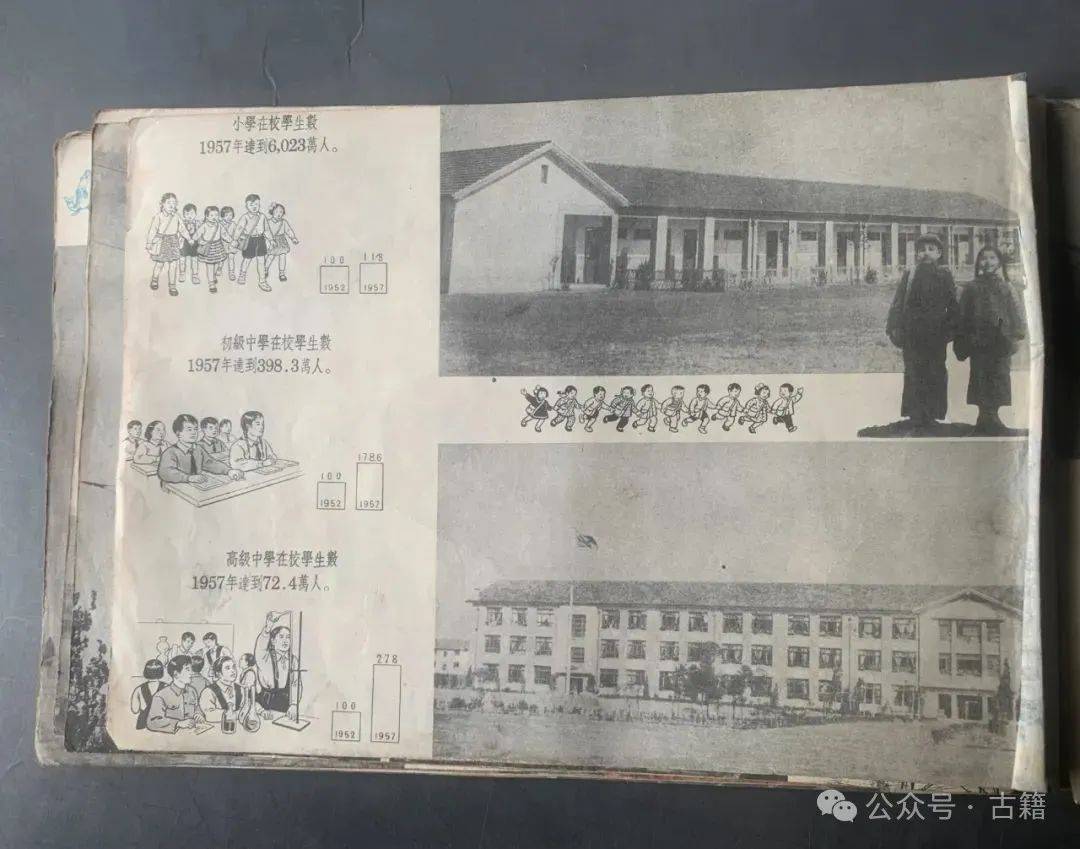 小學在校學生數
1957年達到6,023萬人。
100
118
1952
1957
初級中學在校學生數
1957年達到398.3萬人。
100
178.6
1952
1957
高級中學在校學生數
1957年達到72.4萬人。
100
278
1952
1957
公众号·古籍